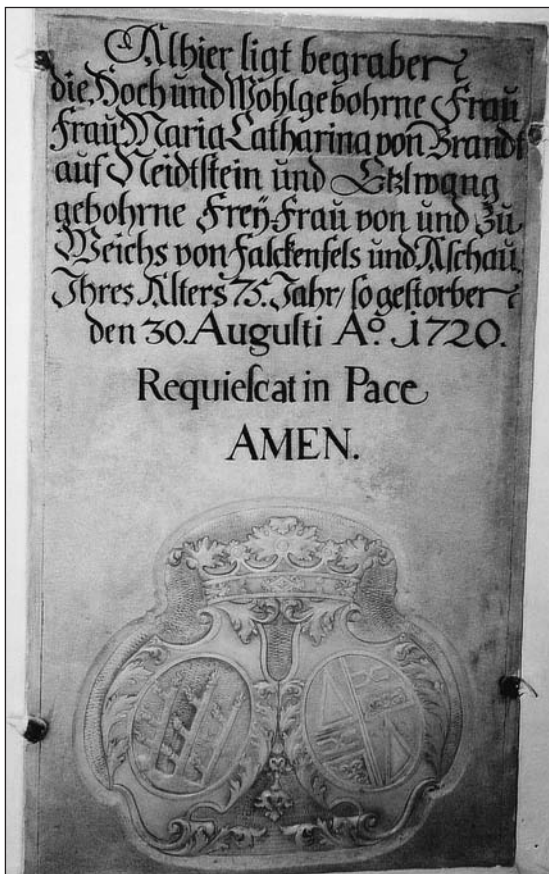 Alhier ligt begraben
die Hoch und Wohlgebohrne Frau
Frau Maria Catharina von Brandt
auf Neidtstein und Etzlwang
gebohrne Freÿ-Frau von und zu
Weichs von Falckenfels und Aschau,
Ihres Alters 75. Jahr/ so gestorben
den 30. Augusti Aº. 1720.
Requiescat in Pace
AMEN.